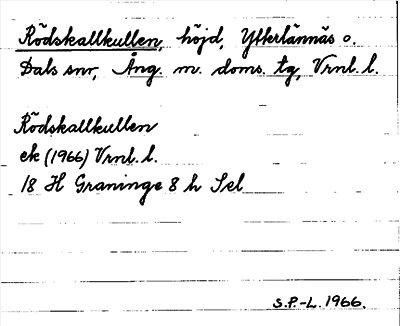 Rödskallkullen, höjd, Ytterlännäs o.
Dals snr, Ång. m. doms. tg, Vrnl. l.
Rödskallkullen
ek (1966) Vrnl. l.
18 H Graninge 8 h Sel
S.P.-L. 1966.